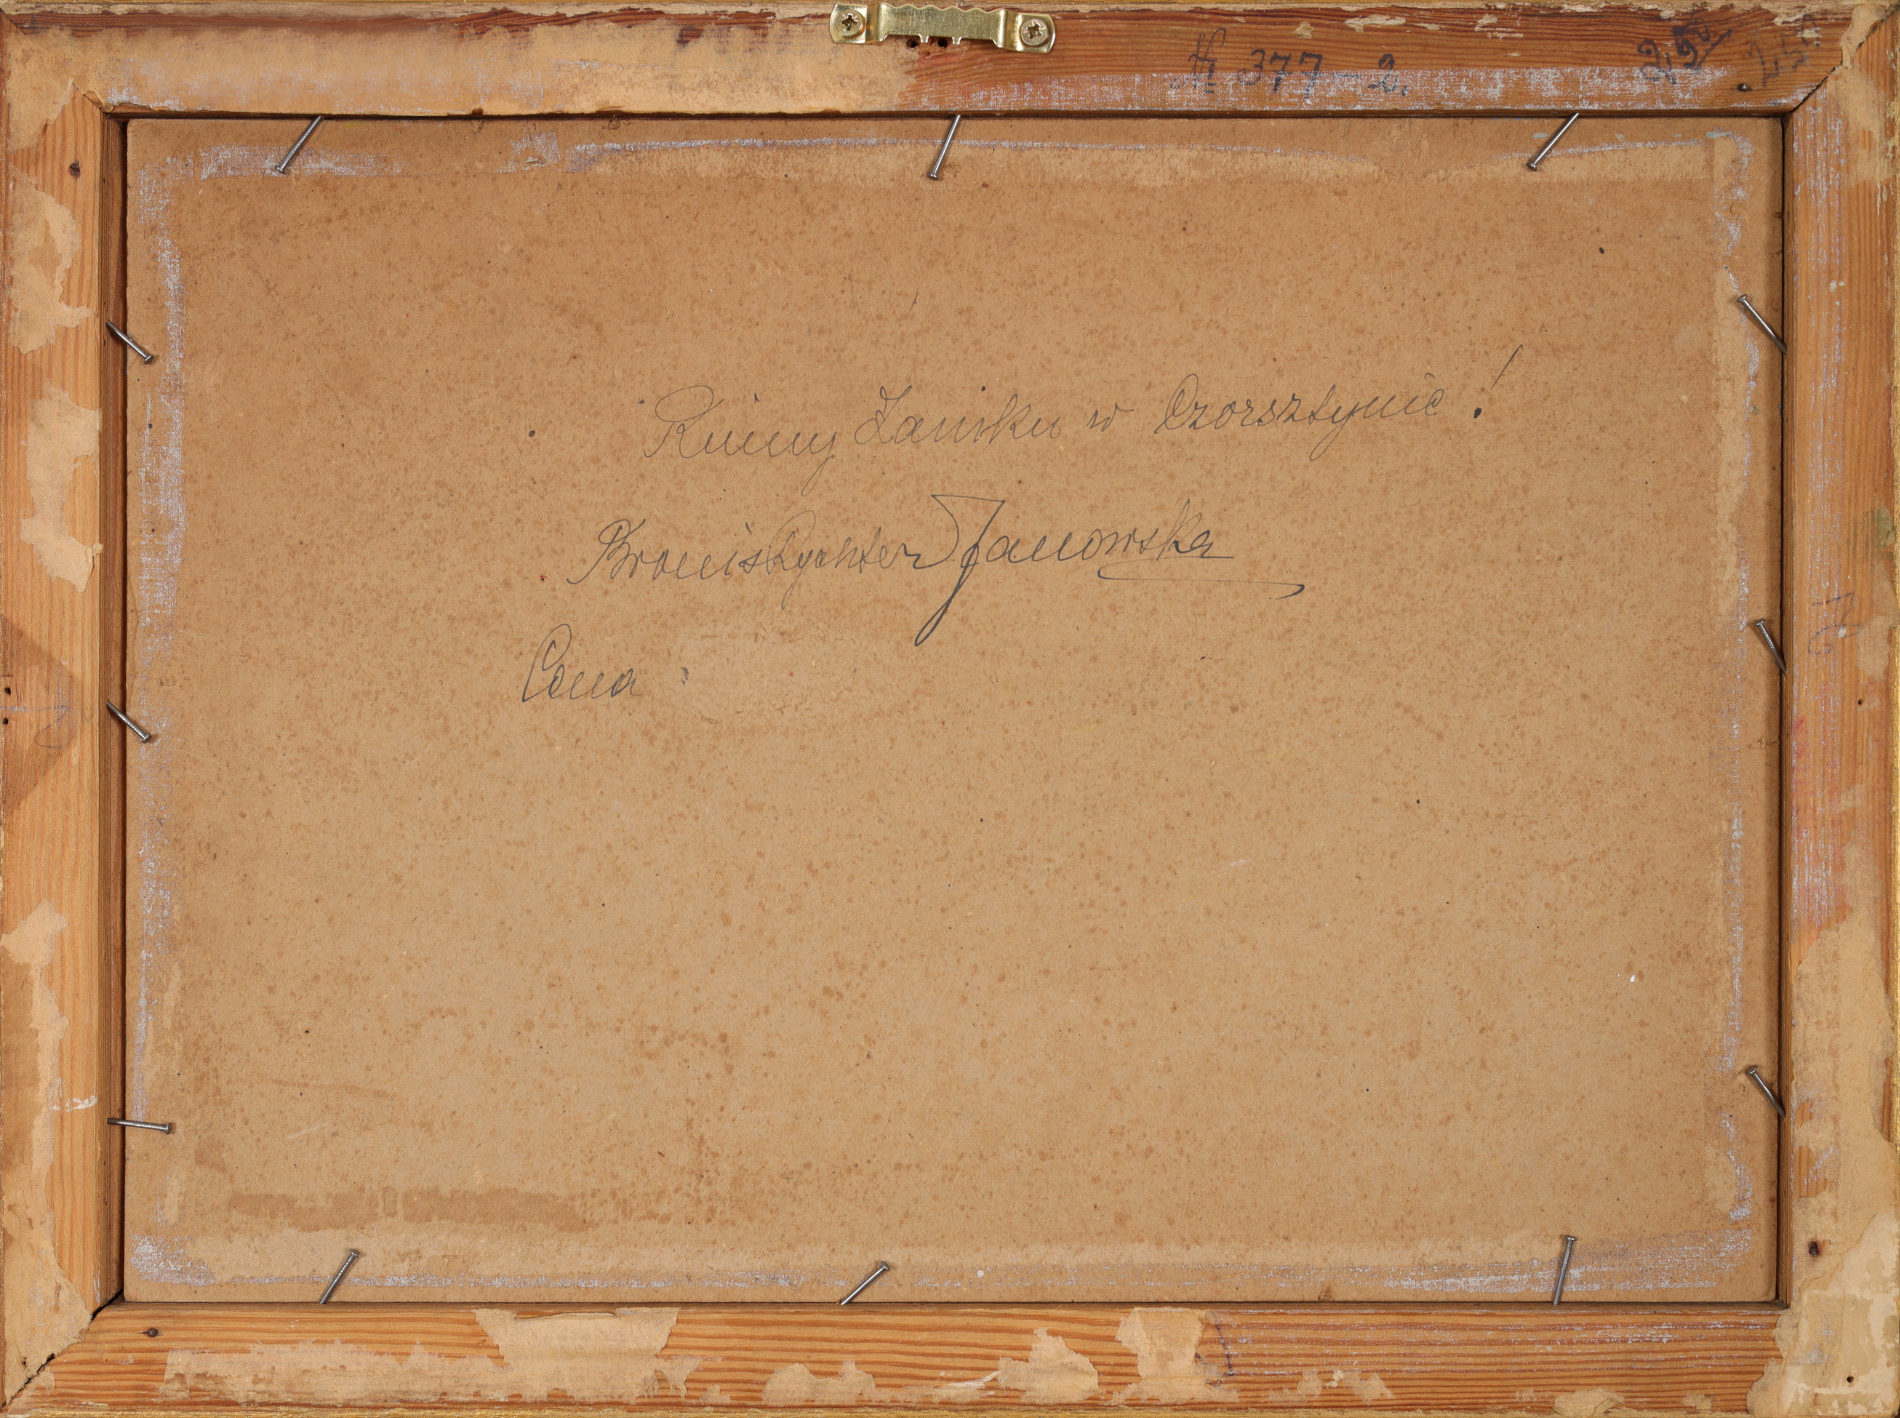 № 377-2.
Ruiny Zamku w Czorsztynie!
Bronis Rychter Janowska
Cena: